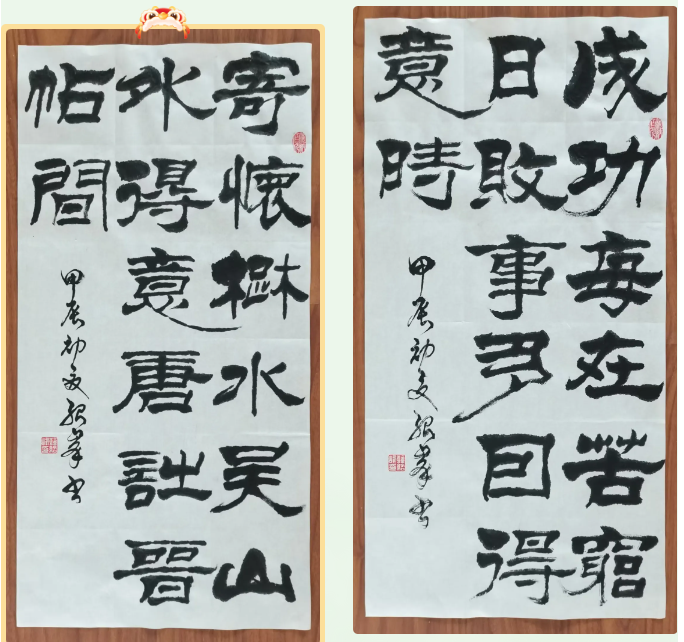 寄懷楚水吳山
外得意唐詩晉
帖間
甲辰初夏 峯书
成功每在苦窮
日敗事多因得
意時
甲辰初夏 峯书